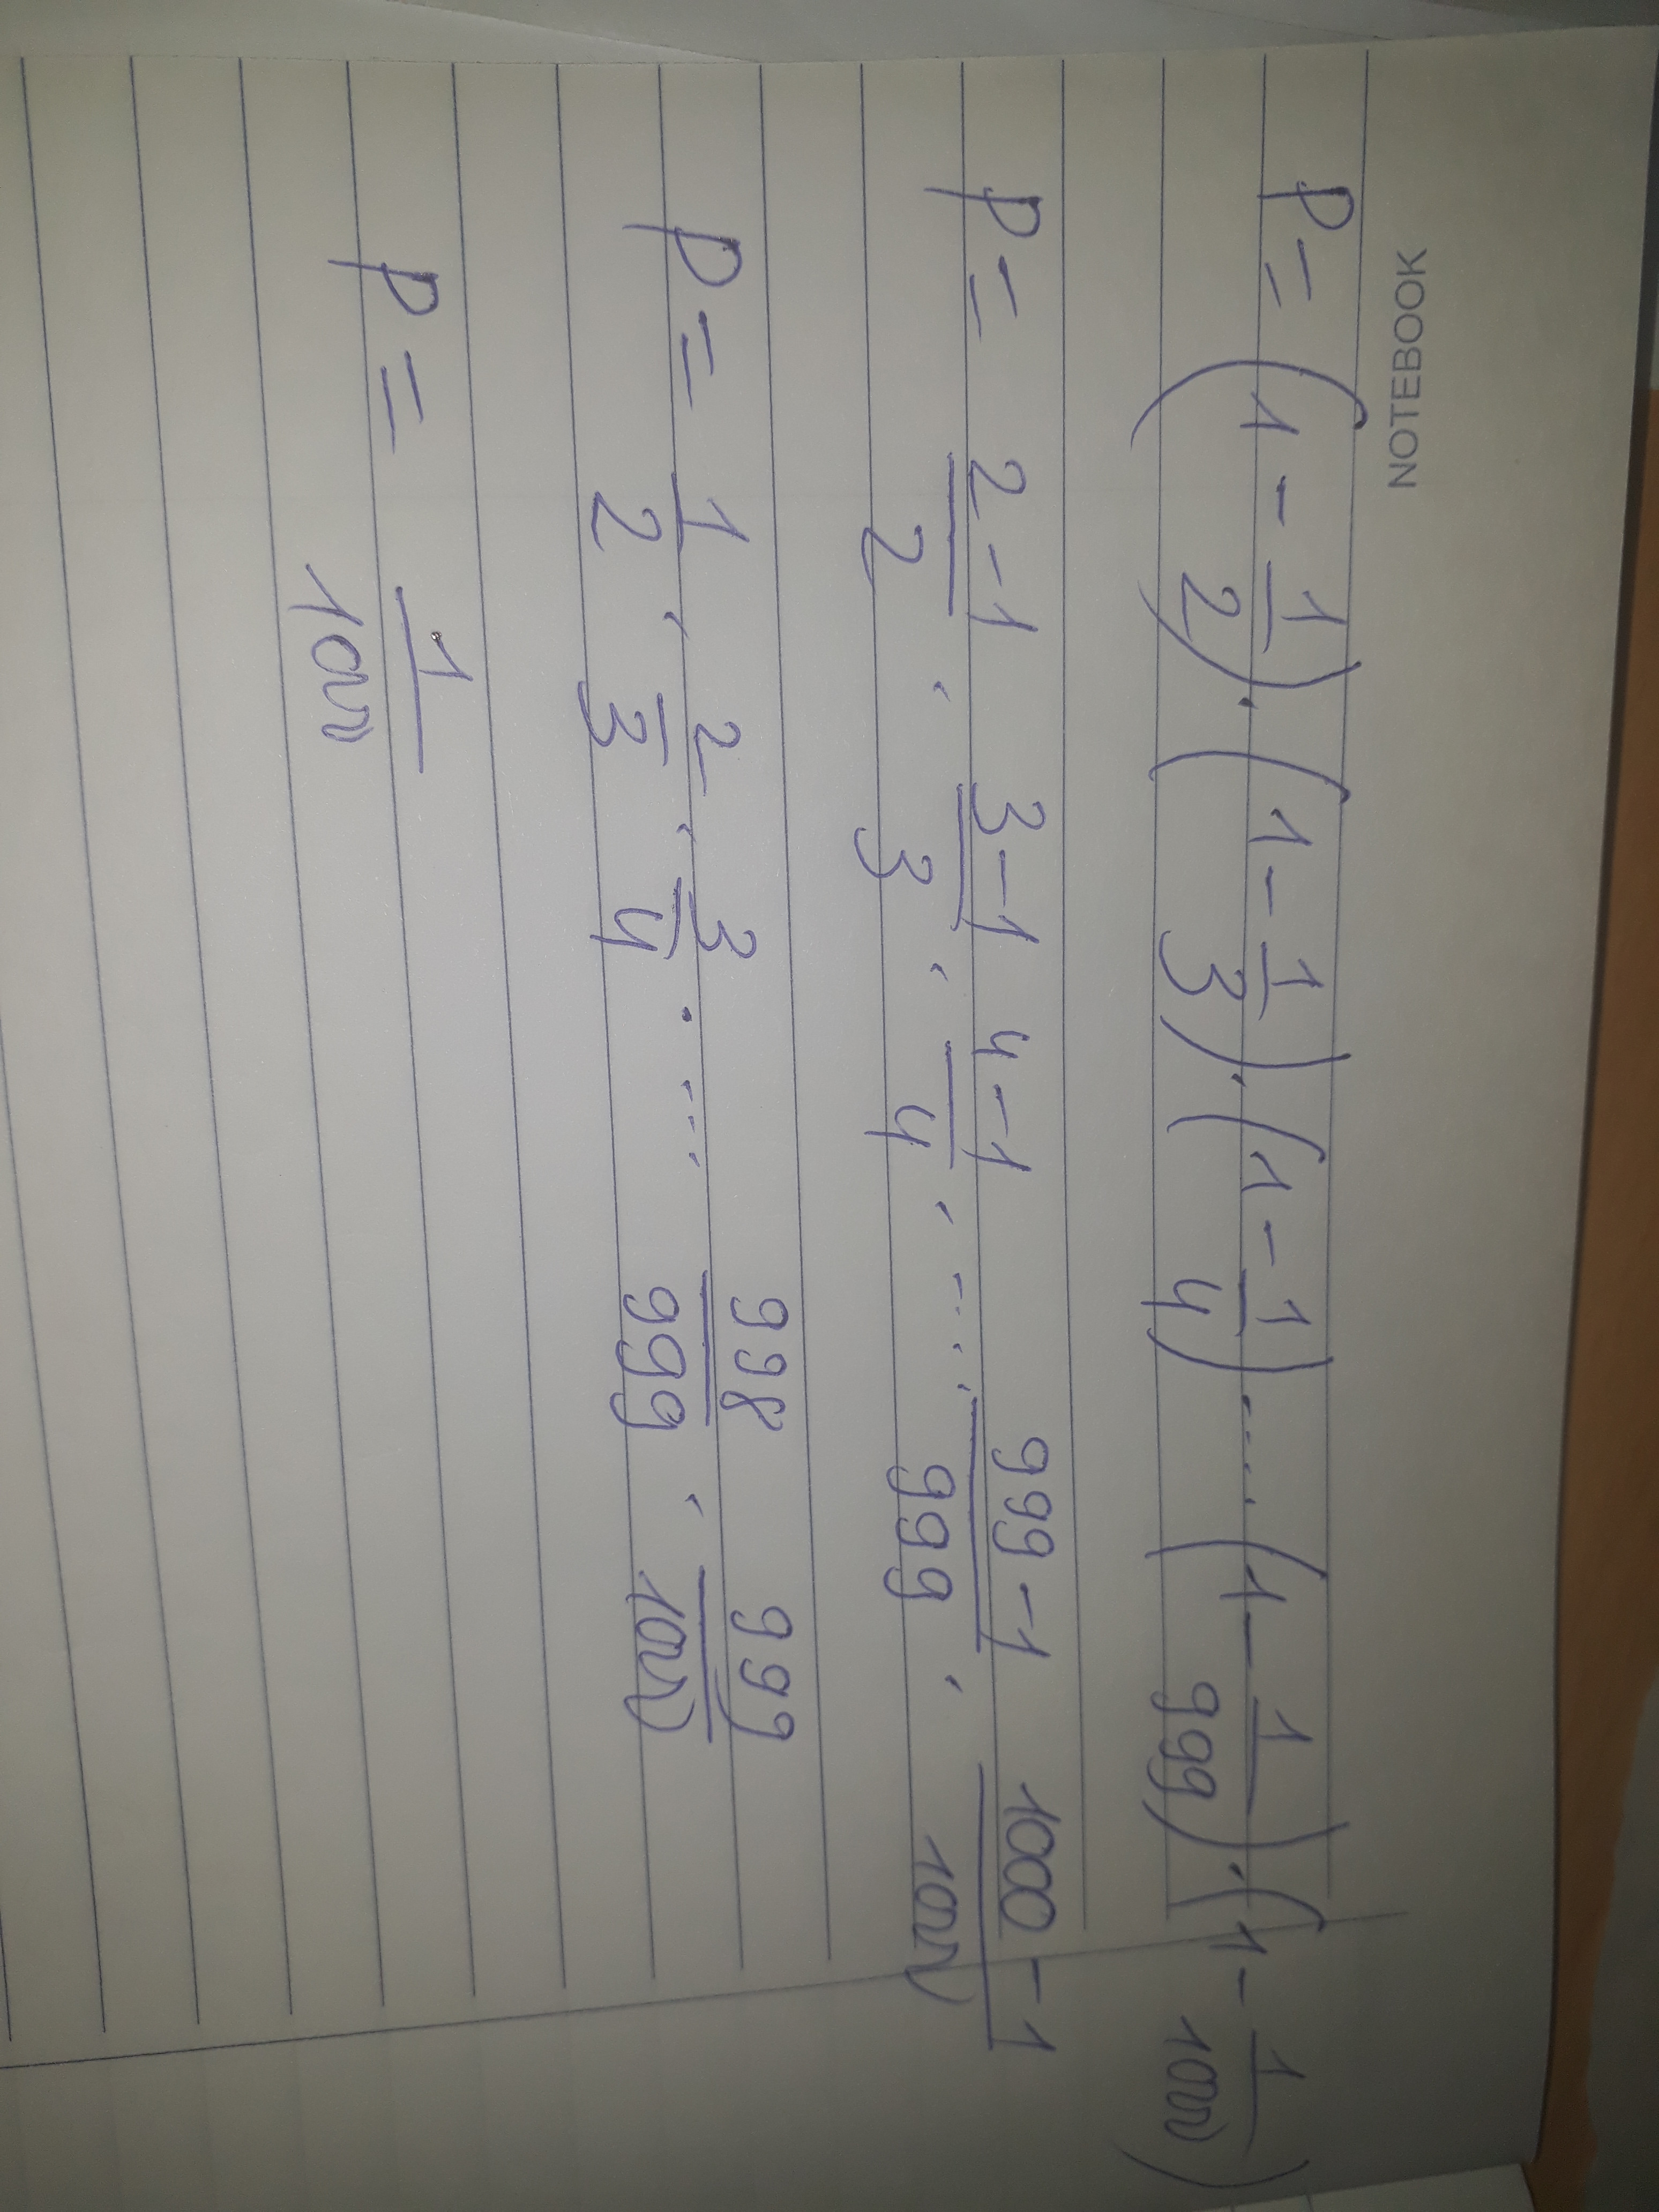 NOTEBOOK
P = (1 - 1/2) · (1 - 1/3) · (1 - 1/4) .... (1 - 1/999) · (1 - 1/1000)
P = (2-1)/2 · (3-1)/3 · (4-1)/4 · .... (999-1)/999 · (1000-1)/1000
P = 1/2 · 2/3 · 3/4 · .... 998/999 · 999/1000
P = 1/1000